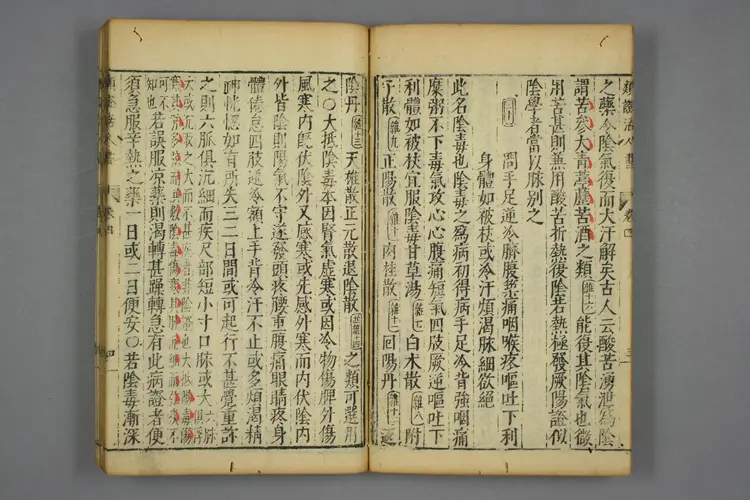 之藥令陰氣復而大汗解矣古人云酸苦湧泄為陰
謂苦參大青葶藶苦酒之類能復其陰氣也微
用苦甚則兼用酸苦折熱復陰若熱極發厥陽證似
陰學者當以脉別之
問手足逆冷臍腹築痛咽喉疼嘔吐下利
身體如被杖或冷汗煩渴脉細欲絕
此名陰毒也陰毒之為病初得病手足冷背強咽痛
糜粥不下毒氣攻心心腹痛短氣四肢厥逆嘔吐下
利體如被杖宜服陰毒甘草湯白朮散附
子散正陽散肉桂散回陽丹返
陰丹天雄散正元散退陰散之類可選用
之〇大抵陰毒本因腎氣虛寒或因冷物傷脾外傷
風寒內既伏陰外又感寒或先感外寒而內伏陰內
外皆陰則陽氣不守遂發頭疼腰重腹痛眼睛疼身
體倦怠四肢逆冷額上手背冷汗不止或多煩渴精
神恍惚如有所失三二日間或可起行不甚覺重診
之則六脉俱沉細而疾尺部短小寸口脉或大
知也若誤服涼藥則渴轉甚躁轉急有此病證者便
須急服辛熱之藥一日或二日便安〇若陰毒漸深